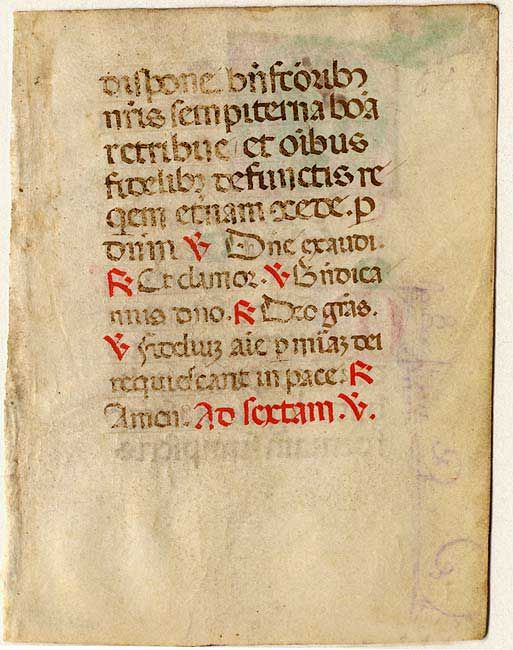 dispone bn̄fcōribꝫ
nr̄is sempiterna boa
retribue et oībus
fidelibꝫ defunctis re
qem et̄nam ꝯcede. p
dnm ℣ Dn̄e exaudi.
℟ Et clamor. ℣ Bn̄dica
mus dn̄o. ℟ Deo grās.
℣ fideliuꝫ aīe p mīaꝫ dei
requiescant in pace. ℟
Amen. Ad sextam. ℣.